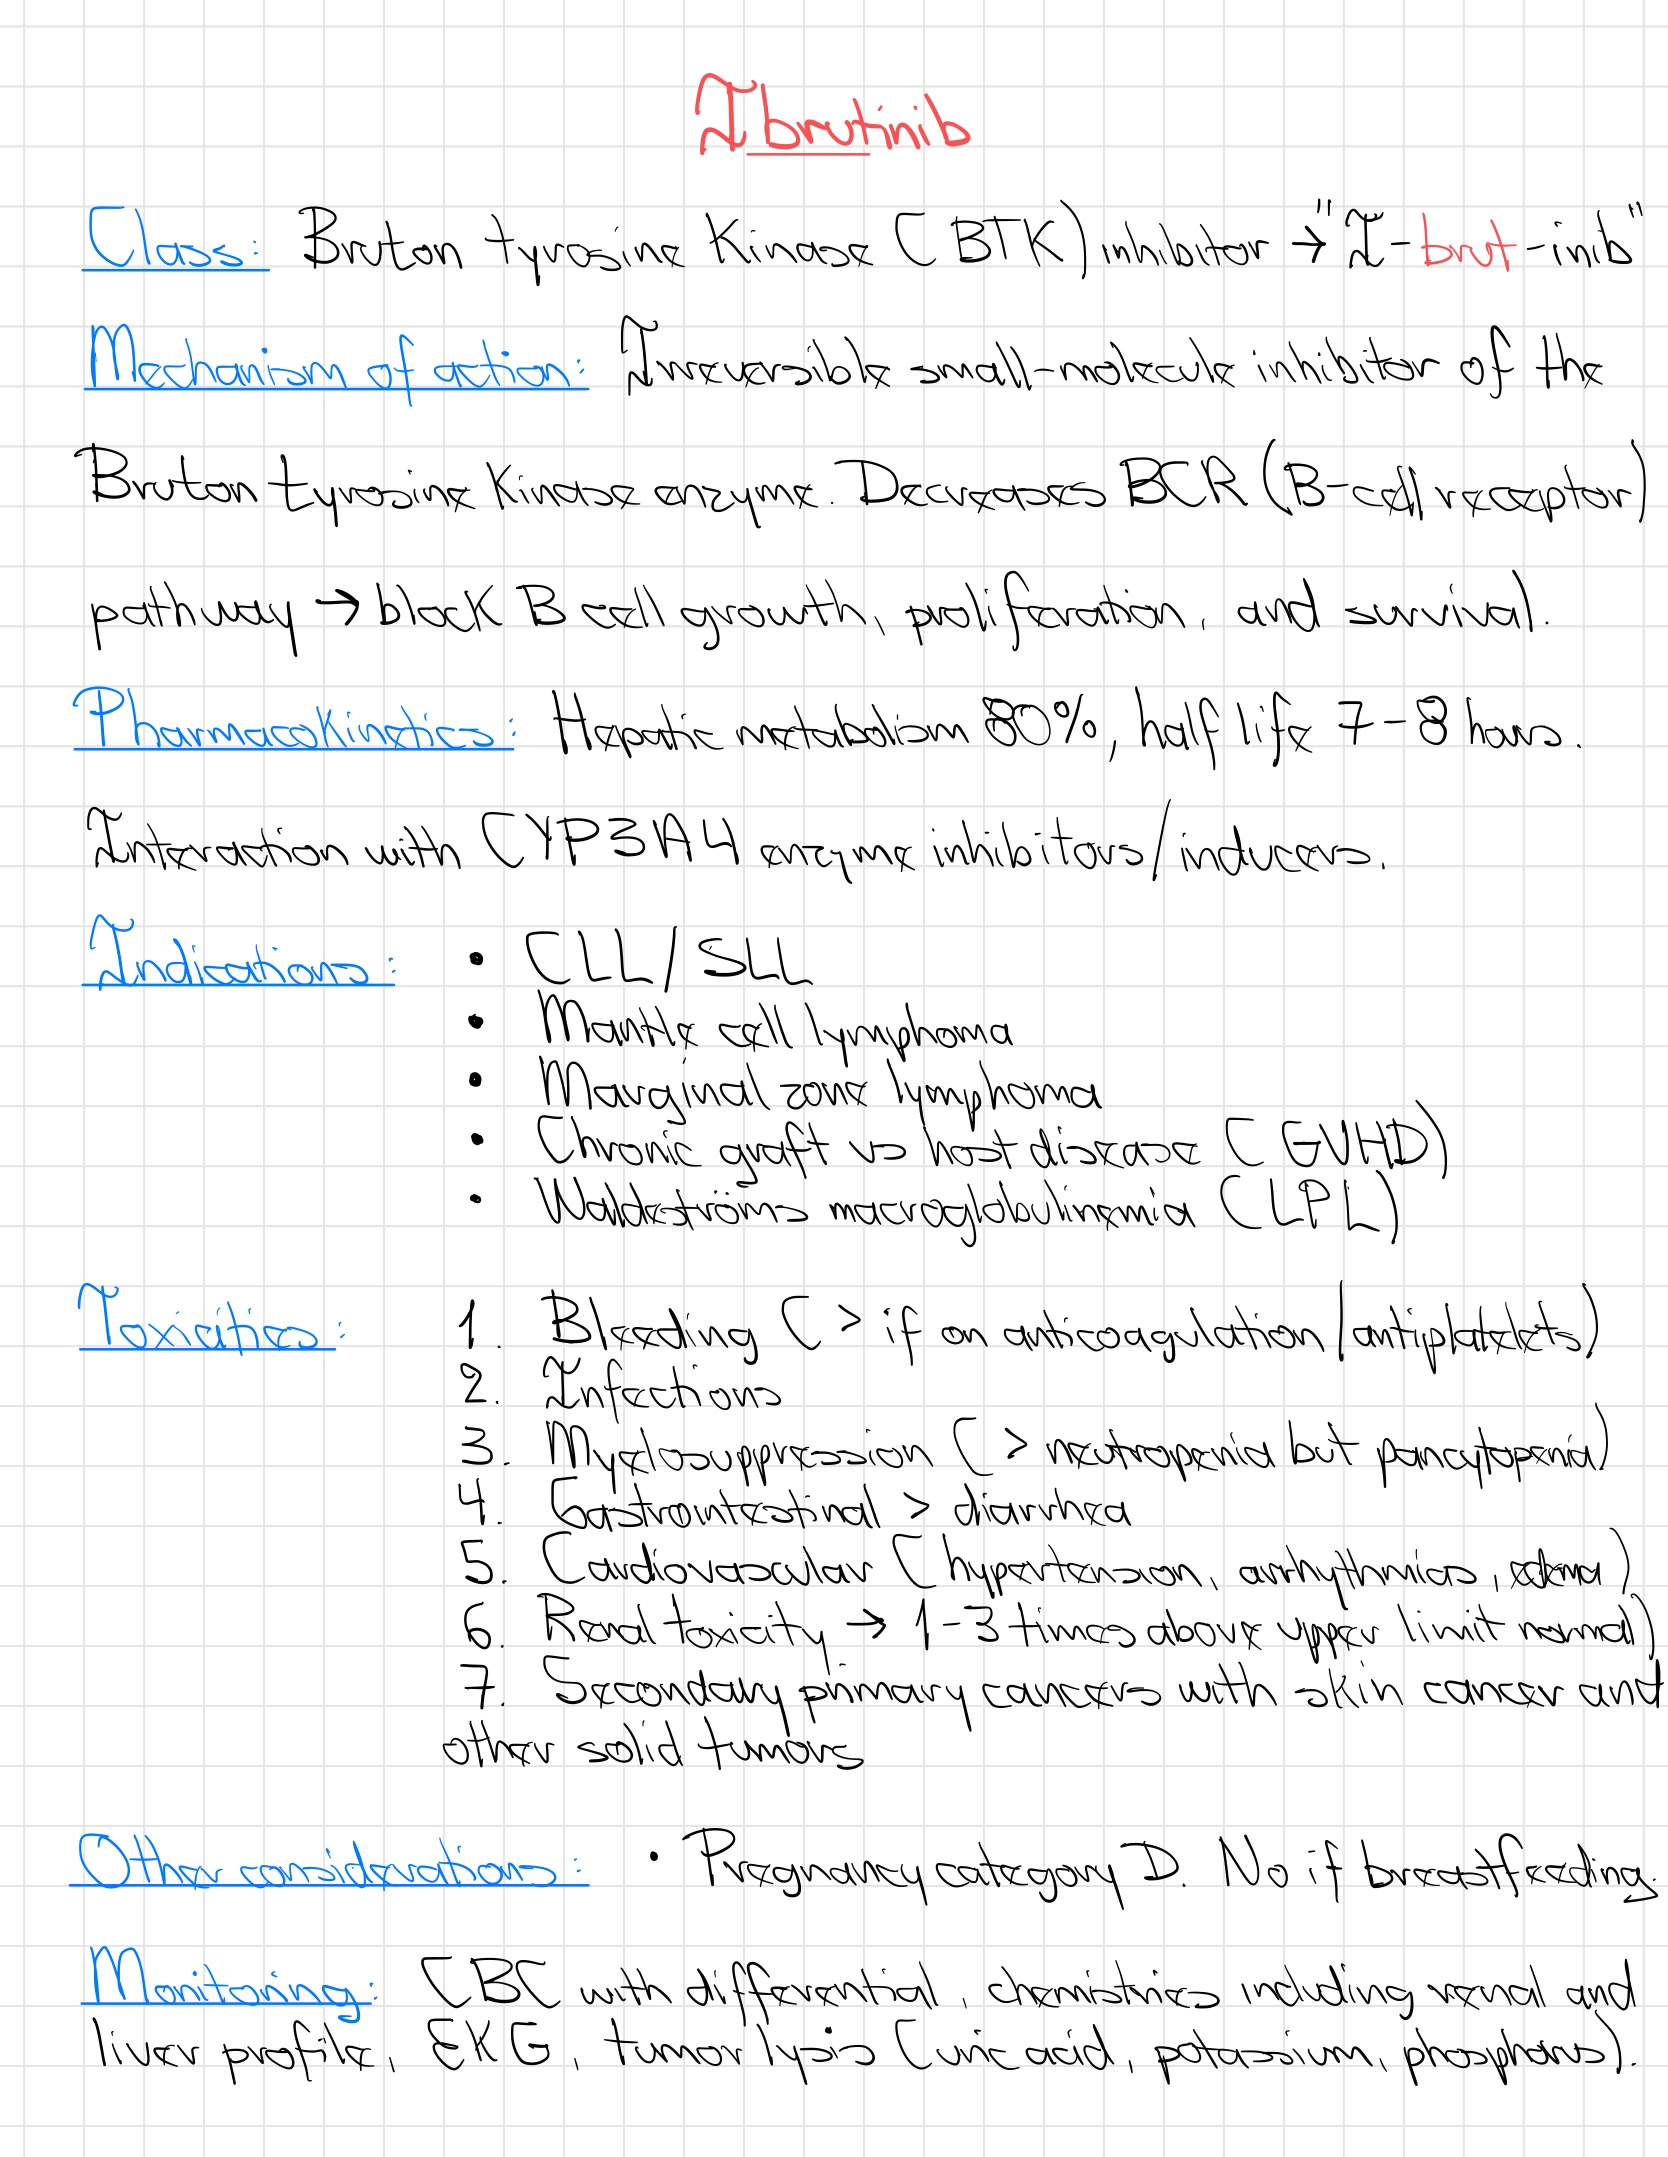 Ibrutinib
Class: Bruton tyrosine Kinase (BTK) inhibitor → "I-brut-inib"
Mechanism of action: Irreversible small-molecule inhibitor of the
Bruton tyrosine Kinase enzyme. Decreases BCR (B-cell receptor)
pathway → block B cell growth, proliferation, and survival.
Pharmacokinetics: Hepatic metabolism 80%, half life 7-8 hours.
Interaction with CYP3A4 enzyme inhibitors/inducers.
Indications: • CLL/SLL
• Mantle cell lymphoma
• Marginal zone lymphoma
• Chronic graft vs host disease (GVHD)
• Waldeströms macroglobulinemia (LPL)
Toxicities: 1. Bleeding (> if on anticoagulation/antiplatelets)
2. Infections
3. Myelosuppression (> neutropenia but pancytopenia)
4. Gastrointestinal > diarrhea
5. Cardiovascular (hypertension, arrhythmias, edema)
6. Renal toxicity → 1-3 times above upper limit normal)
7. Secondary primary cancers with skin cancer and
other solid tumors
Other considerations: • Pregnancy category D. No if breastfeeding.
Monitoring: CBC with differential, chemistries including renal and
liver profile, EKG, tumor lysis (uric acid, potassium, phosphorus).